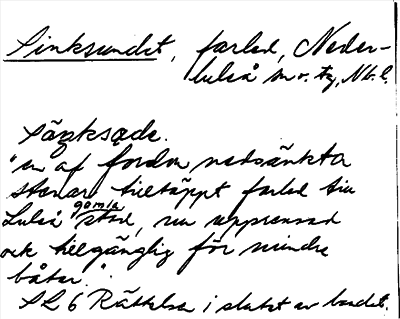 Sinksundet, farled, Neder-
luleå sn o. tg, Nb. l.
Sänksade.
"en af fordom nedsänkta
stenar tilltäppt farled till
Luleå gamla stad, nu upprensad
och tillgänglig för mindre
båtar."
SL 6 Rättelse i slutet av bandet.